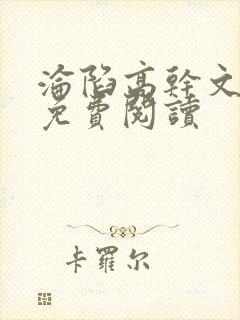 淪陷高幹文
免費閱讀
卡羅尔